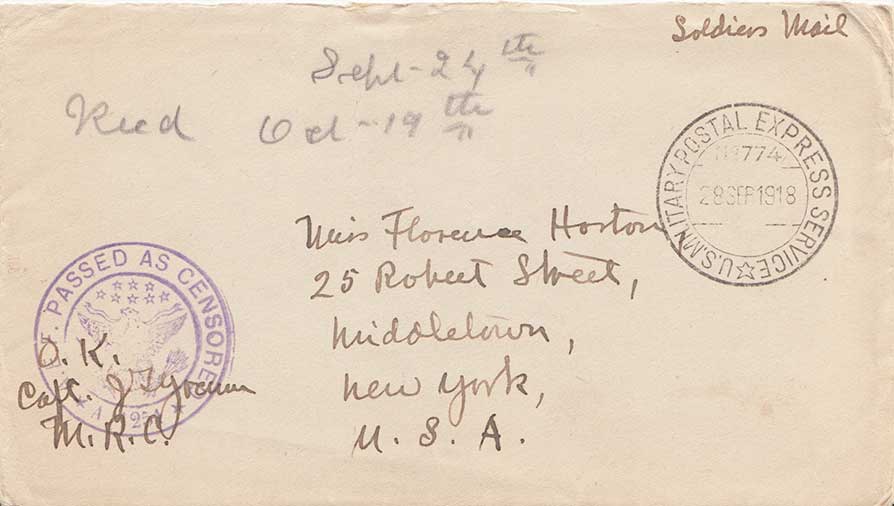 Soldiers Mail
Sept-24th
Recd Oct-19th
U.S. MILITARY POSTAL EXPRESS SERVICE
28 SEP 1918
Miss Florence Horton
25 Robert Street,
Middletown,
New York,
U. S. A.
PASSED AS CENSORED
O. K.
Capt.
M.R.C.